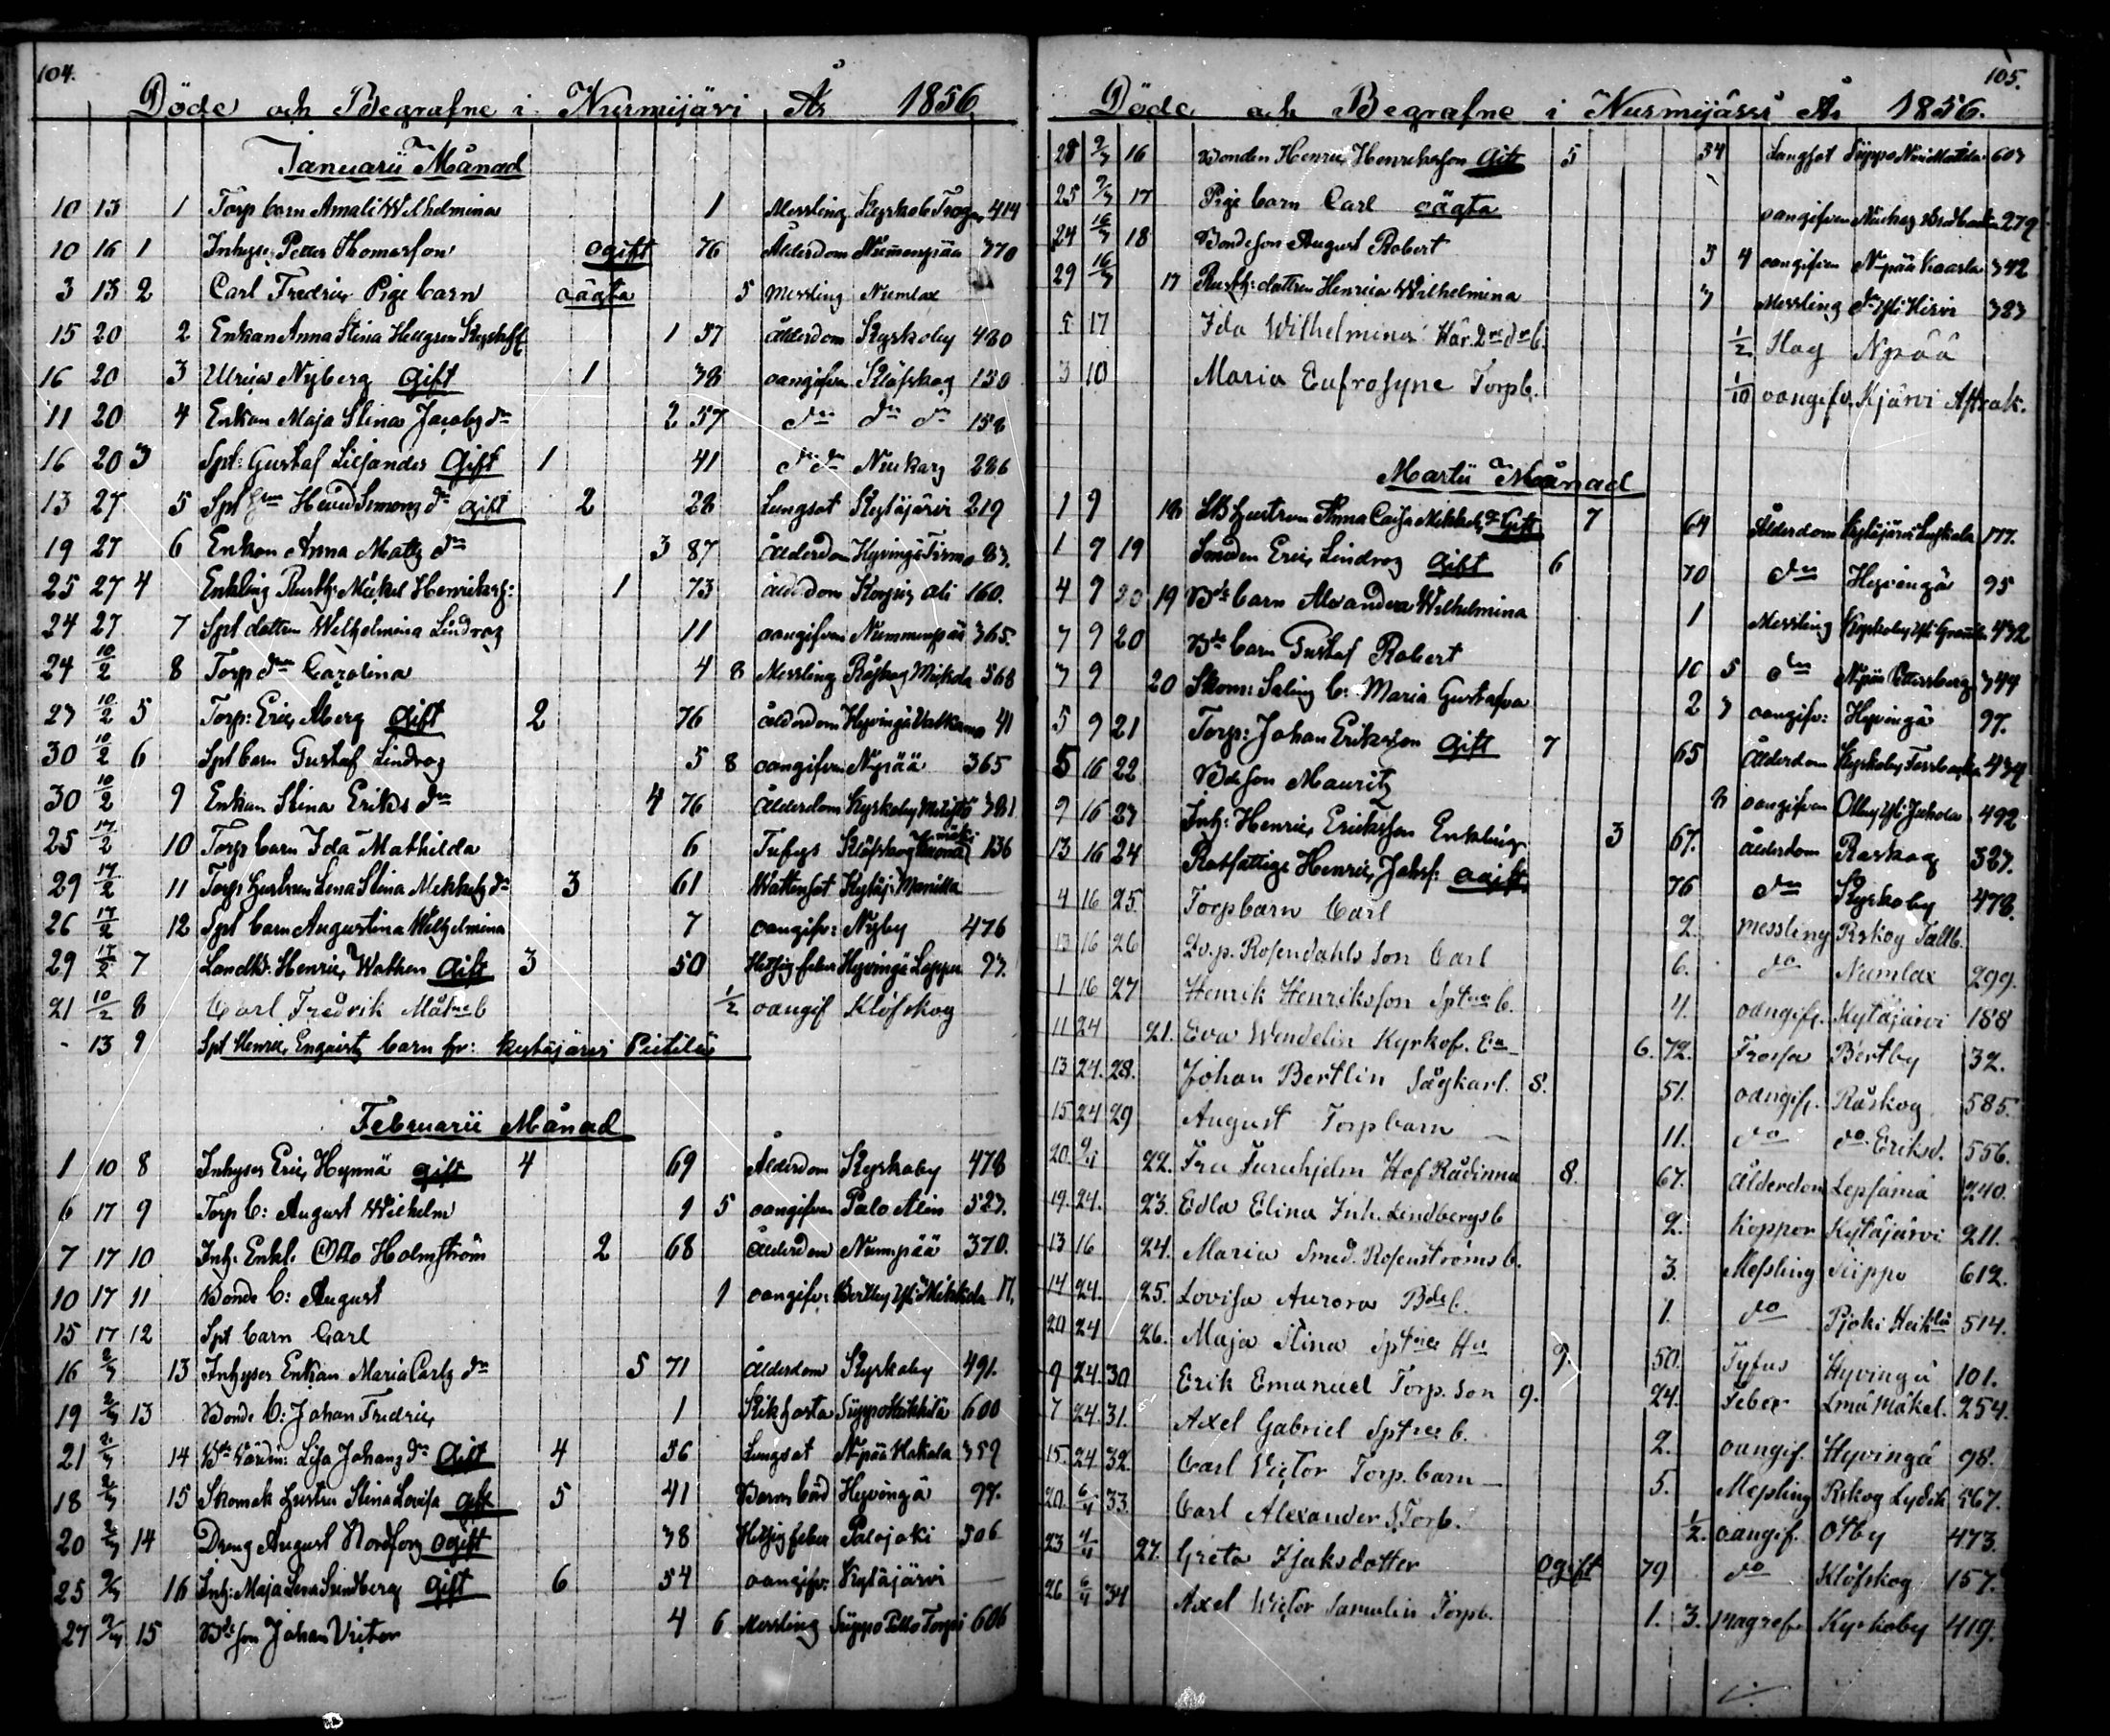 104.
Döde och Begrafne i Nurmijärvi År 1856
Januarii Månad
10 13 1 Torp barn Amali Wilhelmina 1 Messling Kyrkob 414
10 16 1 Inhyses Petter Thomasson ogift 76 Ålderdom Nummenpää 370
3 13 2 Carl Fredric Pige barn oägta 5 Messling Numlax
15 20 2 Enkan Anna Stina 1 57 Ålderdom Kyrkoby 480
16 20 3 Ulrica Nyberg Gift 1 38 oangifven Klöfskog 130
11 20 4 Enkan Maja Stina Jacobs dr 2 57 do do do 158
16 20 3 Spt: Gustaf Liljander Gift 1 41 do do Nuckarz 286
13 27 5 Spt Simons dr Gift 2 28 Lungsot Kytäjärvi 219
19 27 6 Enkan Anna Matts dr 3 87 Ålderdom Hyvingä 83.
25 27 4 Enkling Rusth: Mickel Henricks: 1 73 ålderdom ali 160.
24 27 7 Spt dottren Wilhelmina Lindroz 11 oangifven Nummenpää 365.
24 10/2 8 Torp dr Carolina 4 8 Messling Råskog Mickola 568
23 10/2 5 Torp: Eric Åberg Gift 2 76 ålderdom Hyvingä Valkama 41
30 10/2 6 Spt barn Gustaf Lindroz 5 8 oangifven Npää 365
30 10/2 9 Enkan Stina Eriks dr 4 76 Ålderdom Kyrkoby 381
25 17/2 10 Torp barn Ida Mathilda 6 Tufys Klöfskog 136
29 17/2 11 Torp: hustrun Lena Stina Mickels dr 3 61 Wattusot Kytäj: Manilla
26 17/2 12 Spt barn Augustina Wilhelmina 7 oangifv: Nyby 476
29 17/2 7 Landb: Henric Wathen Gift 3 50 Hetsig feber Hyvingä Leppu 93.
21 10/2 8 Carl Fredrik b 1/2 oangif Klöfskog
- 13 9 Spt Henric Engqvists barn fr: Kytäjärvi Pietilä
Februarii Månad
1 10 8 Inhyses Eric Hynnä Gift 4 69 Ålderdom Kyrkoby 478
6 17 9 Torp b: August Wilhelm 1 5 oangifven Palo Alin 523.
7 17 10 Inh: Enkl. Otto Holmström 2 68 Ålderdom Numpää 370.
10 17 11 Bonde b: August 1 oangifv: Bertby Yli Mikkola 17.
15 17 12 Spt barn Carl
16 2/3 13 Inhyses Enkan Maria Carls dr 5 71 Ålderdom Kyrkoby 491.
19 2/3 13 Bonde b: Johan Fredric 1 Kikhosta Siippo Heikkilä 600
21 2/3 14 Bde Värdin: Lisa Johans dr Gift 4 36 Lungsot Npää Hakala 359
18 2/3 15 Skomak hustru Stina Lovisa Gift 5 41 Barnsbörd Hyvingä 97.
20 2/3 14 Dreng August Nordfors ogift 38 Hetsig feber Palojoki 506
25 9/3 16 Inh: Maja Lena Sundberg Gift 6 54 oangifv: Kytäjärvi
27 9/3 15 Bde son Johan Victor 4 6 Messling Siippo Torpi 606
105.
Döde och Begrafne i Nurmijärvi År 1856.
28 9/3 16 Bonden Henric Henricksson Gift 5 54 Lungsot Siippo 603
25 9/3 17 Pige barn Carl oägta oangifven 279
24 16/3 18 Bondeson August Robert 3 4 oangifven Npää Kaarla 342
29 16/3 17 Rusth: dottren Henrica Wilhelmina 3 Messling do Yli Hirvi 323
5 17 Ida Wilhelmina b. 1/2 Slag Npää
3 10 Maria Eufrosyne Torpb. 1/10 oangifv. Kjärvi
Martii Månad
1 9 18 hustrun Anna Caisa Mickels dr Gift 7 64 Ålderdom Kytäjärvi 177.
1 9 19 Smeden Eric Lindroz Gift 6 70 do Hyvingä 95
4 9 20 19 Bde barn Alexandra Wilhelmina 1 Messling Kyrkoby 432
7 9 20 Bde barn Gustaf Robert 10 5 do Npää Pettersberg 344
7 9 20 Skom: Saling b: Maria Gustafva 2 3 oangifv: Hyvingä 97.
5 9 21 Torp: Johan Eriksson Gift 7 65 Ålderdom Kyrkoby 434
5 16 22 Bde son Mauritz 8 oangifven Otby Yli Juhola 492
9 16 23 Inh: Henric Ericksson Enkling 3 67. Ålderdom Råskog 327.
13 16 24 Rotfattige Henric Johsf: ogift 76 do Kyrkoby 478.
4 16 25. Torpbarn Carl 2. Messling Rskog Tallb.
13 16 26 Rosendahls son Carl 6. do Numlax 299.
1 16 27 Henrik Henriksson Sptns b. 4. oangif. Kytäjärvi 188
11 24 21. Eva Wendelin Kyrkof. Ea 6. 72. Frossa Bertby 32.
13 24. 28. Johan Bertlin Sågkarl. 8. 51. oangif. Råskog 585.
15 24 29 August Torpbarn 11. do do Eriksd. 556.
20. 6/4 22. Fru Furuhjelm Hof Rådinna 8. 67. Ålderdom Lepsämä 240.
19. 24. 23. Edla Elina Inh. Lindbergs b 2. Koppor Kytäjärvi 211.
13 16 24. Maria Smed. Rosenströms b. 3. Messling Siippo 612.
14 24. 25. Lovisa Aurora Bds b. 1. do Pjoki Heiklä 514.
20 24 26. Maja Stina Sptns Hu 9 50. Tyfus Hyvingä 101.
9 24. 30 Erik Emanuel Torp. son 9. 24. Feber 254.
7 24. 31. Axel Gabriel Sptns b. 2. oangif. Hyvingä 98.
15. 24. 32. Carl Victor Torp. barn 5. Messling Rskog Lydik 567.
20. 6/4 33. Carl Alexander Torb. 1/2. oangif. Otby 473.
23 6/4 27. Greta Isaksdotter ogift 79 do Klöfskog 157.
26 6/4 34 Axel Wictor Samulin Torpb. 1. 3. Magref. Kyrkoby 419.